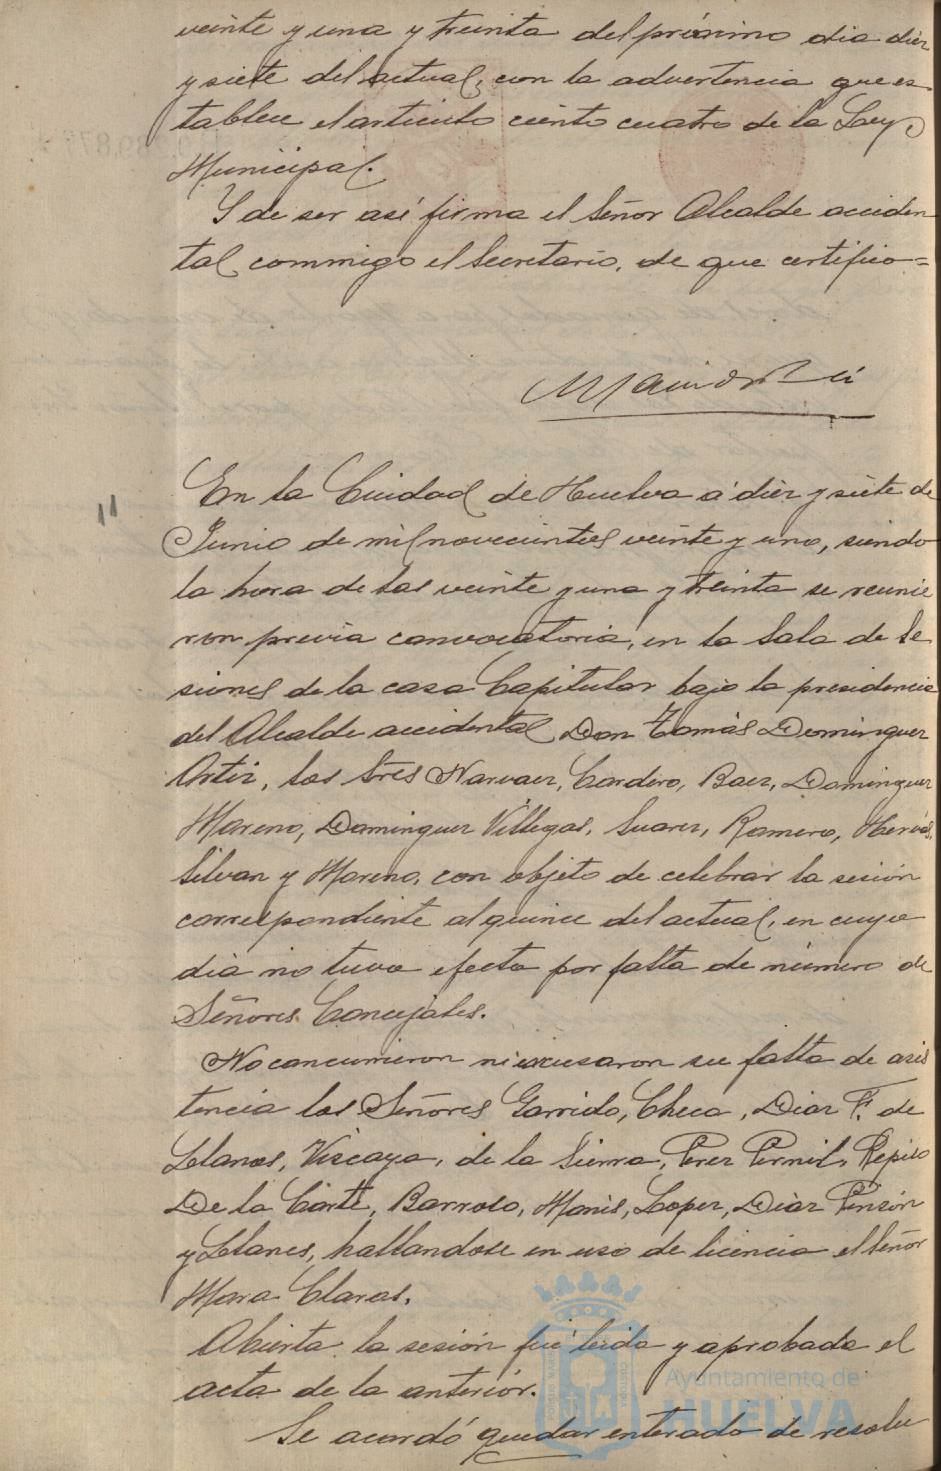 veinte y una y treinta del próximo dia diez
y siete del actual, con la advertencia que es-
tablece el articulo ciento cuatro de la Ley
Municipal.
Y de ser así firma el Señor Alcalde acciden
tal conmigo el Secretario, de que certifico=
En la Ciudad de Huelva á diez y siete de
Junio de mil novecientos veinte y uno, siendo
la hora de las veinte y una y treinta se reunie
ron previa convocatoria, en la Sala de Se
siones de la casa Capitular bajo la presidencia
del Alcalde accidental Don Tomás Dominguez
Ortiz, los Sres Narvaez, Cordero, Baez, Dominguez
Moreno, Dominguez Villegas, Suarez, Romero, Hervás,
Silvan y Moreno, con objeto de celebrar la sesión
correspondiente al quince del actual, en cuyo
dia no tuvo efecto por falta de número de
Señores Concejales.
No concurrieron ni excusaron su falta de asis
tencia los Señores Garrido, Checa, Diaz F. de
Llanos, Vizcaya, de la Sierra, Perez Pernil, Repiso
De la Corte, Barroso, Monis, Lopez, Diaz Pinzón
y Llanes, hallandose en uso de licencia el Señor
Mora Claros.
Abierta la sesión fué leida y aprobada el
acta de la anterior.
Se acordó quedar enterado de resolu
Ayuntamiento de
HUELVA